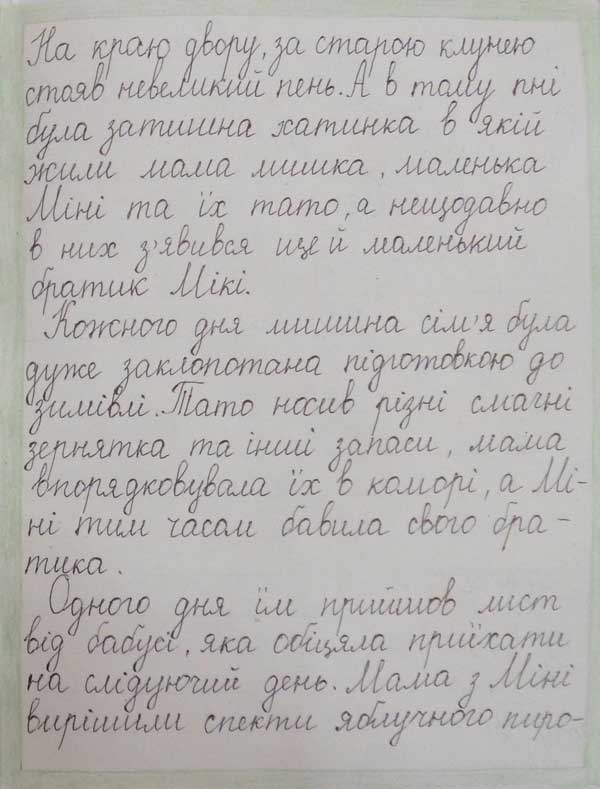 На краю двору, за старою клунею
стояв невеликий пень. А в тому пні
була затишна хатинка в якій
жили мама мишка, маленька
Міні та їх тато, а нещодавно
в них з'явився ще й маленький
братик Мікі.
Кожного дня мишина сім'я була
дуже заклопотана підготовкою до
зимівлі. Тато носив різні смачні
зернятка та інші запаси, мама
впорядковувала їх в коморі, а Мі-
ні тим часом бавила свого бра-
тика.
Одного дня їм прийшов лист
від бабусі, яка обіцяла приїхати
на слідуючий день. Мама з Міні
вирішили спекти яблучного пиро-